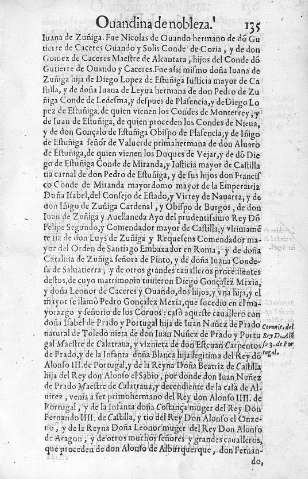 Ouandina de nobleza. 135
Iuana de Zuñiga. Fue Nicolas de Ouando hermano de dõ Gu
tierre de Caceres Ouando y Solis Conde de Coria, y de don
Gomez de Caceres Maestre de Alcantara, hijos del Conde dõ
Gutierre de Ouando y Caceres. Fue assi mismo doña Iuana de
Zuñiga hija de Diego Lopez de Estuñiga Iusticia mayor de Ca
stilla, y de doña Iuana de Leyua hermana de don Pedro de Zu
ñiga Conde de Ledesma, y despues de Plasencia, y de Diego Lo
pez de Estuñiga, de quien vienen los Condes de Monterrey, y
de Iuan de Estuñiga, de quien proceden los Condes de Neiua,
y de don Gonçalo de Estuñiga Obispo de Plasencia, y de Iñigo
de Estuñiga señor de prima hermana de don Aluaro
de Estuñiga, de quien vienen los Duques de Vejar, y de dõ Die
go de Estuñiga Conde de Miranda, y Iusticia mayor de Castilla
tia carnal de don Pedro de Estuñiga, y de sus hijos don Francis
co Conde de Miranda mayordomo mayor de la Emperatriz
Doña Isabel, del Consejo de Estado, y Virrey de Nauarra, y de
don Iñigo de Zuñiga Cardenal, y Obispo de Burgos, de don
Iuan de Zuñiga y Auellaneda Ayo del prudentissimo Rey Dõ
Felipe Segundo, y Comendador mayor de Castilla, y vltimamẽ
te tia de don Luys de Zuñiga y Requesens Comendador ma
yor del Orden de Santiago Embaxador en Roma, y de doña
Catalina de Zuñiga señora de Pinto, y de doña Iuana Conde-
sa de Saluatierra, y de otros grandes caualleros procedientes
destos, de cuyo matrimonio tuuieron Diego Gonçalez Mexia,
y doña Leonor de Caceres y Ouando, dos hijos, y vna hija, y el
mayor se llamó Pedro Gonçalez Mexia, que sucedio en el ma-
yorazgo y señorio de los Cornos: casó aqueste cauallero con
doña Isabel de Prado y Portugal hija de Iuan Nuñez de Prado
natural de Toledo nieta de don Iuan Nuñez de Prado y Portu
gal Maestre de Calatraua, y viznieta de don Esteuan
de Prado, y de la Infanta doña Blanca hija legitima del Rey dõ
Alonso IIII. de Portugal, y de la Reyna Doña Beatriz de Castilla
hija del Rey don Alonso el Sabio, por donde don Iuan Nuñez
de Prado Maestre de Calatraua, y decendiente de la casa de Al-
uires, venia a ser primo hermano del Rey don Alonso IIII. de
Portugal, y de la Infanta doña Costança muger del Rey Don
Fernando IIII. de Castilla, y tio del Rey Don Alonso el Onze-
no, y de la Reyna Doña Leonor muger del Rey Don Alonso
de Aragon, y de otros muchos señores y grandes caualleros,
que proceden de don Alonso de Alburquerque, don Fernan-
do,